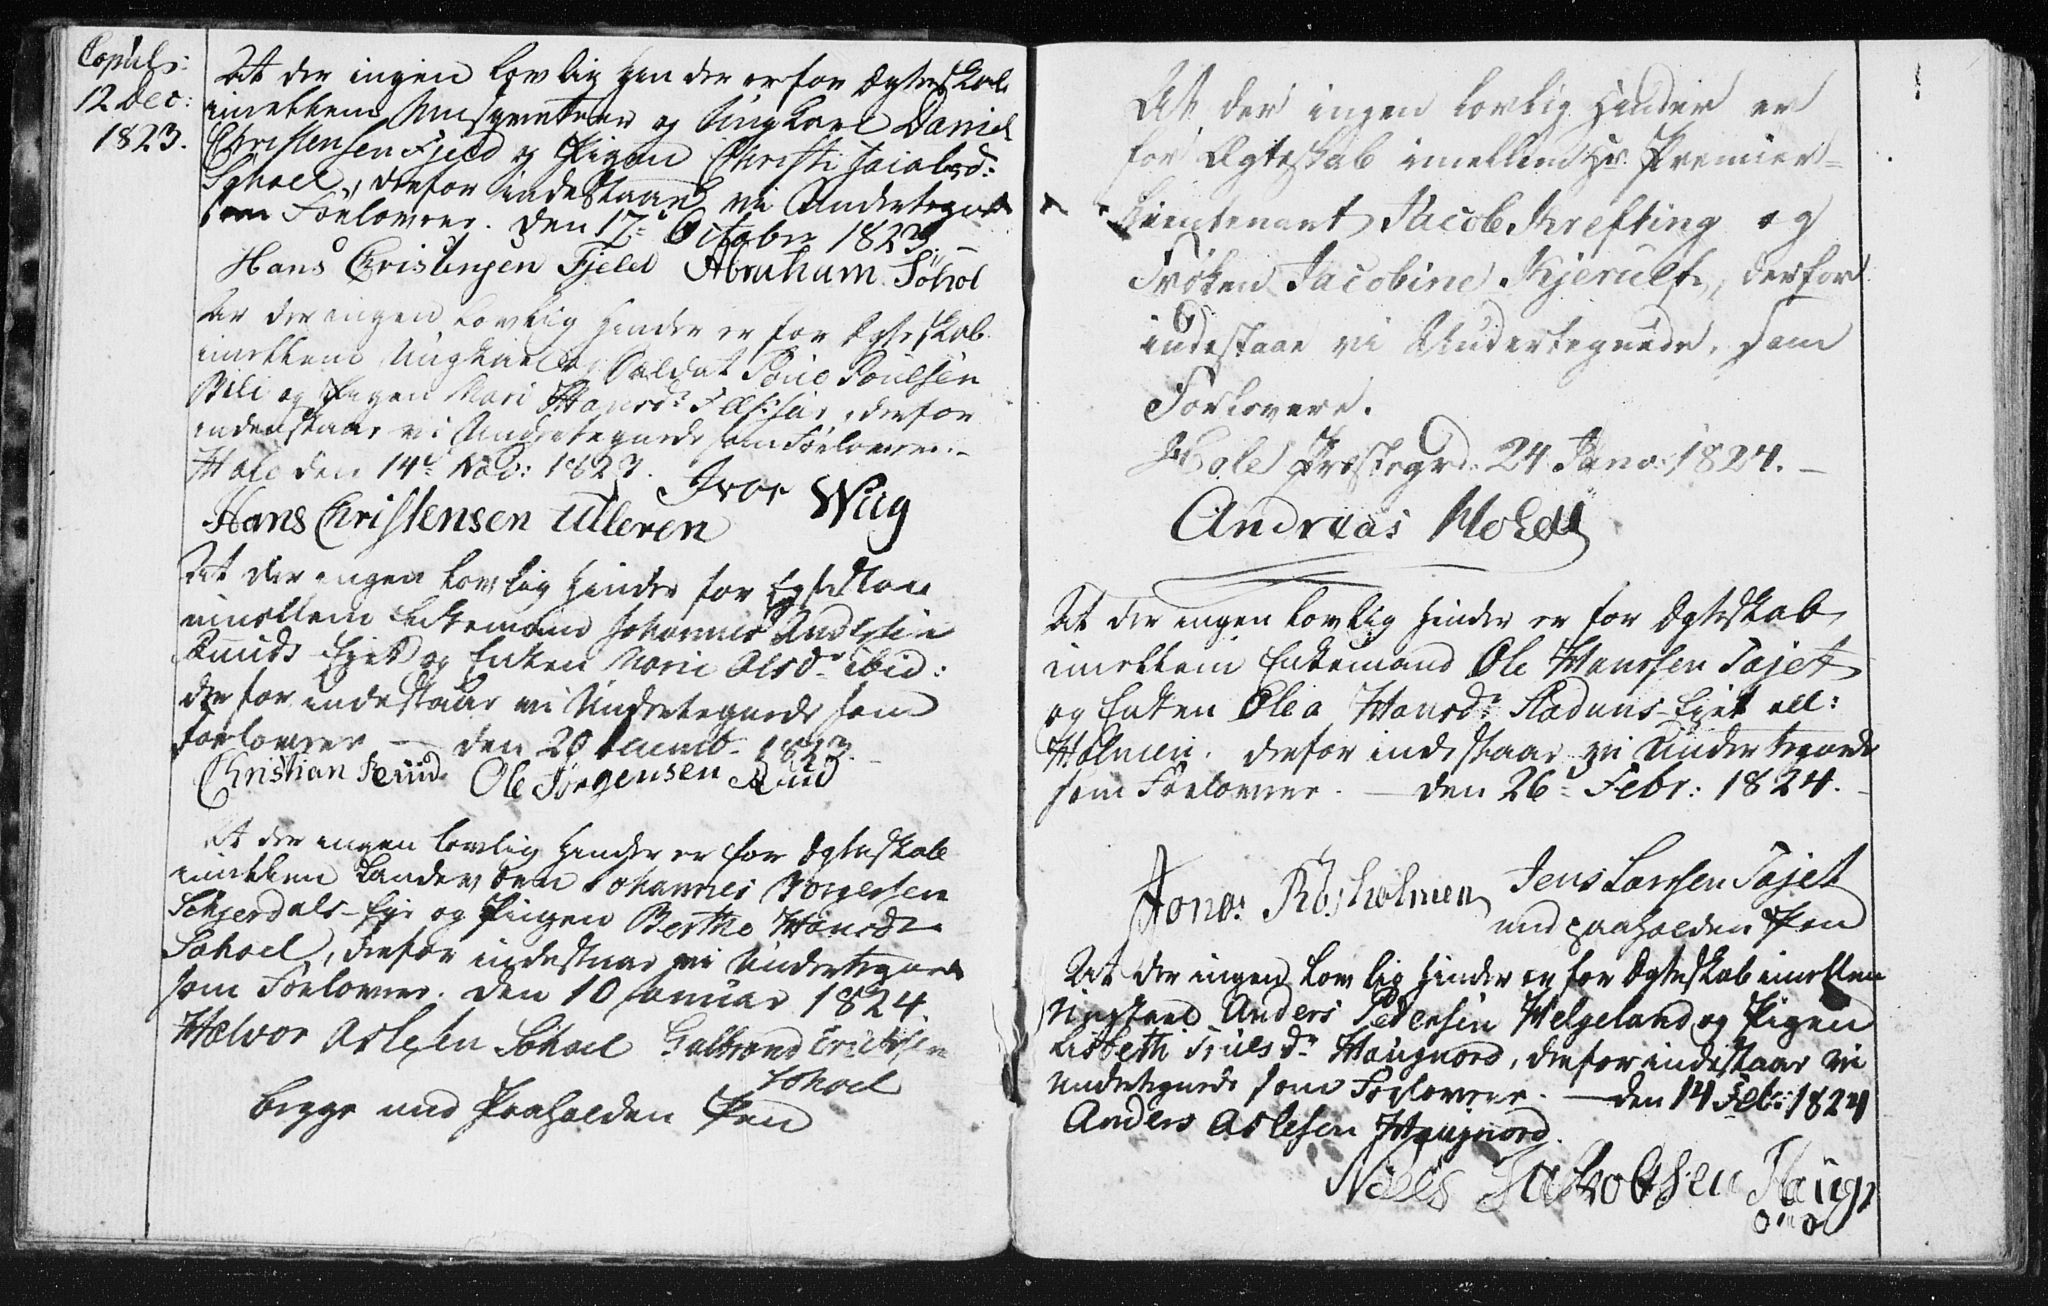 Copul:
12 Dec:
1823.
At der ingen lovlig Hinder er for Ægteskab
imellem Musqueteer og Ungkarl Daniel
Christensen Fjeld og Pigen Christi Jacobsd:
Søhoel, derfor indestaae vi Undertegnede
som Forlovere. Den 17de October 1823. –
Hans Christensen Fjeld Abraham Søhol
At der ingen lovlig Hinder er for Ægteskab
imellem Ungkarl og Soldat Poul Poulsen
og Pigen Mari Hansdr , derfor
indestaaer vi Undertegnede som Forlovere. –
Hole den 14de Nov: 1823. Iver Wiig
Hans Christensen Ulleren
At der ingen lovlig Hinder for Egteskab
imellem Enkemand Johannes Andersen
Ruuds Eiet og Enken Marie Olsdr ibid:
derfor indestaaer vi Undertegnede som
Forlovere — den 20 1823. –
Christian Ruud Ole Jørgensen Ruud
At der ingen lovlig Hinder er for Ægteskab
imellem Landev Johannes
Schjerdals-Eje og Pigen Berthe Hansdr
Søhoel, derfor indestaaer vi Undertegnede
som Forlovere. Den 10 Januar 1824.
Halvor Aslesen Søhoel Gulbrand Erichsen
Søhoel
begge med Paaholden Pen
At der ingen lovlig Hinder er
for Ægteskab imellem Hr. Premier-
Lieutenant Jacob Krefting og
Frøken Jacobine Kjerulf, derfor
indestaae vi Undertegnede, som
Forlovere.
Hole Præstegrd: 24 Janv: 1824. –
Andreas
At der ingen lovlig Hinder er for Ægteskab
imellem Enkemand Ole Hanssen Tajet
og Enken Olea Hansdr Stadums-Eiet ell:
Holmen. derfor indestaaer vi Undertegnede
som Forlovere. — den 26de Febr: 1824. –
Jonas Røsholmen Jens Larsen Tajet
med paaholden Pen
At der ingen lovlig Hinder er for Ægteskab imellem
Ungkarl Anders Pedersen Helgeland og Pigen
Lisbeth Truelsdr Haugnord, derfor indestaaer vi
Undertegnede som Forlovere. — den 14 Feb: 1824
Anders Aslesen Haugnord.
Niels Jakobsen Haug